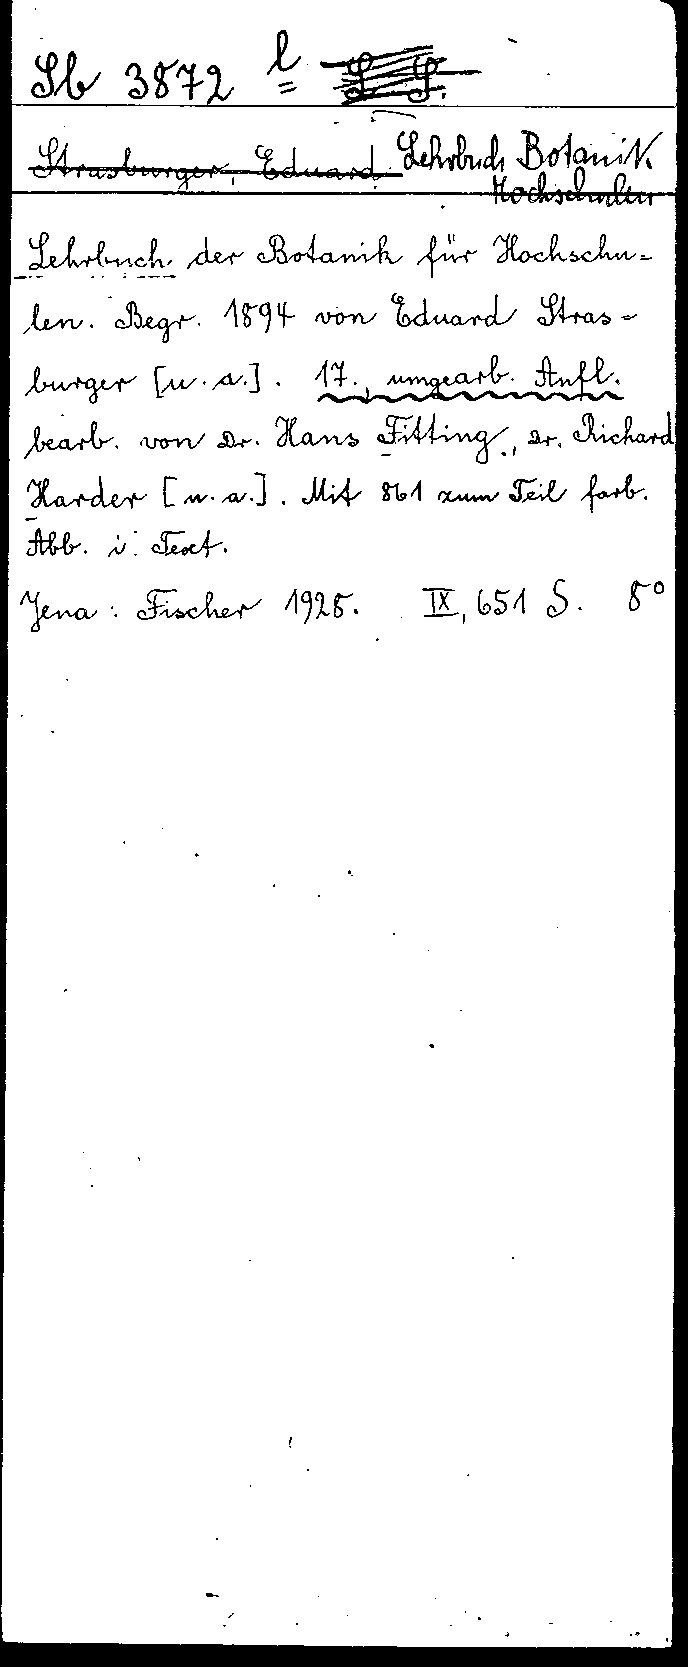 Sb 3872 l
Strasburger, Eduard Lehrbuch Botanik
Hochschulen
Lehrbuch der Botanik für Hochschu-
len. Begr. 1894 von Eduard Stras-
burger [u. a.]. 17., umgearb. Aufl.
bearb. von Dr. Hans Fitting, Dr. Richard
Harder [u. a.]. Mit 861 zum Teil farb.
Abb. i. Text.
Jena: Fischer 1928. IX, 651 S. 8°